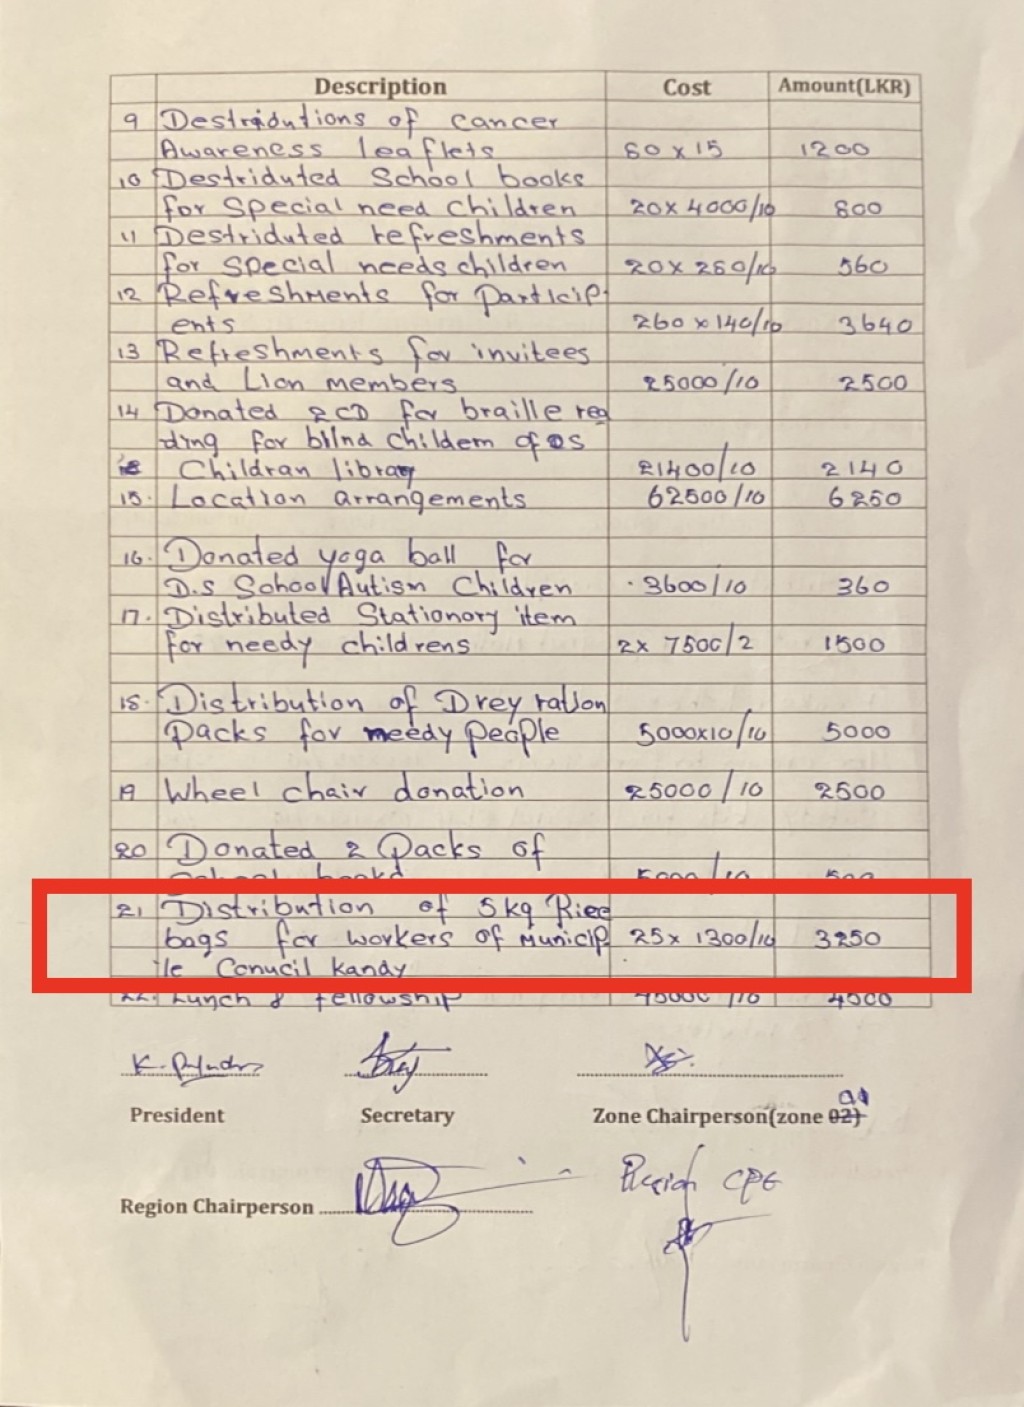 Description Cost Amount(LKR)
9 Destridutions of cancer
Awareness leaflets 80 x 15 1200
10 Destriduted School books
for Special need children 20x 4000/10 800
11 Destriduted refreshments
for Special needs children 20x 280/10 560
12 Refreshments for Particip-
ents 260 x 140/10 3640
13 Refreshments for invitees
and Lion members 25000/10 2500
14 Donated 2 CD for braille rea
ding for blind childern of DS
Children library 21400/10 2140
15. Location arrangements 62500/10 6250
16. Donated yoga ball for
D.S School Autism Children 3600/10 360
17. Distributed Stationory item
for needy childrens 2x 7500/2 1500
18. Distribution of Drey ration
Packs for needy People 5000x10/10 5000
19 Wheel chair donation 25000/10 2500
20 Donated 2 Packs of
5000/10 500
21 Distribution of 5kg Rice
bags for workers of Municip 25x 1300/10 3250
le Conucil kandy
22. Lunch & fellowship /10 4500
President Secretary Zone Chairperson(zone 02)
Region Chairperson
Region